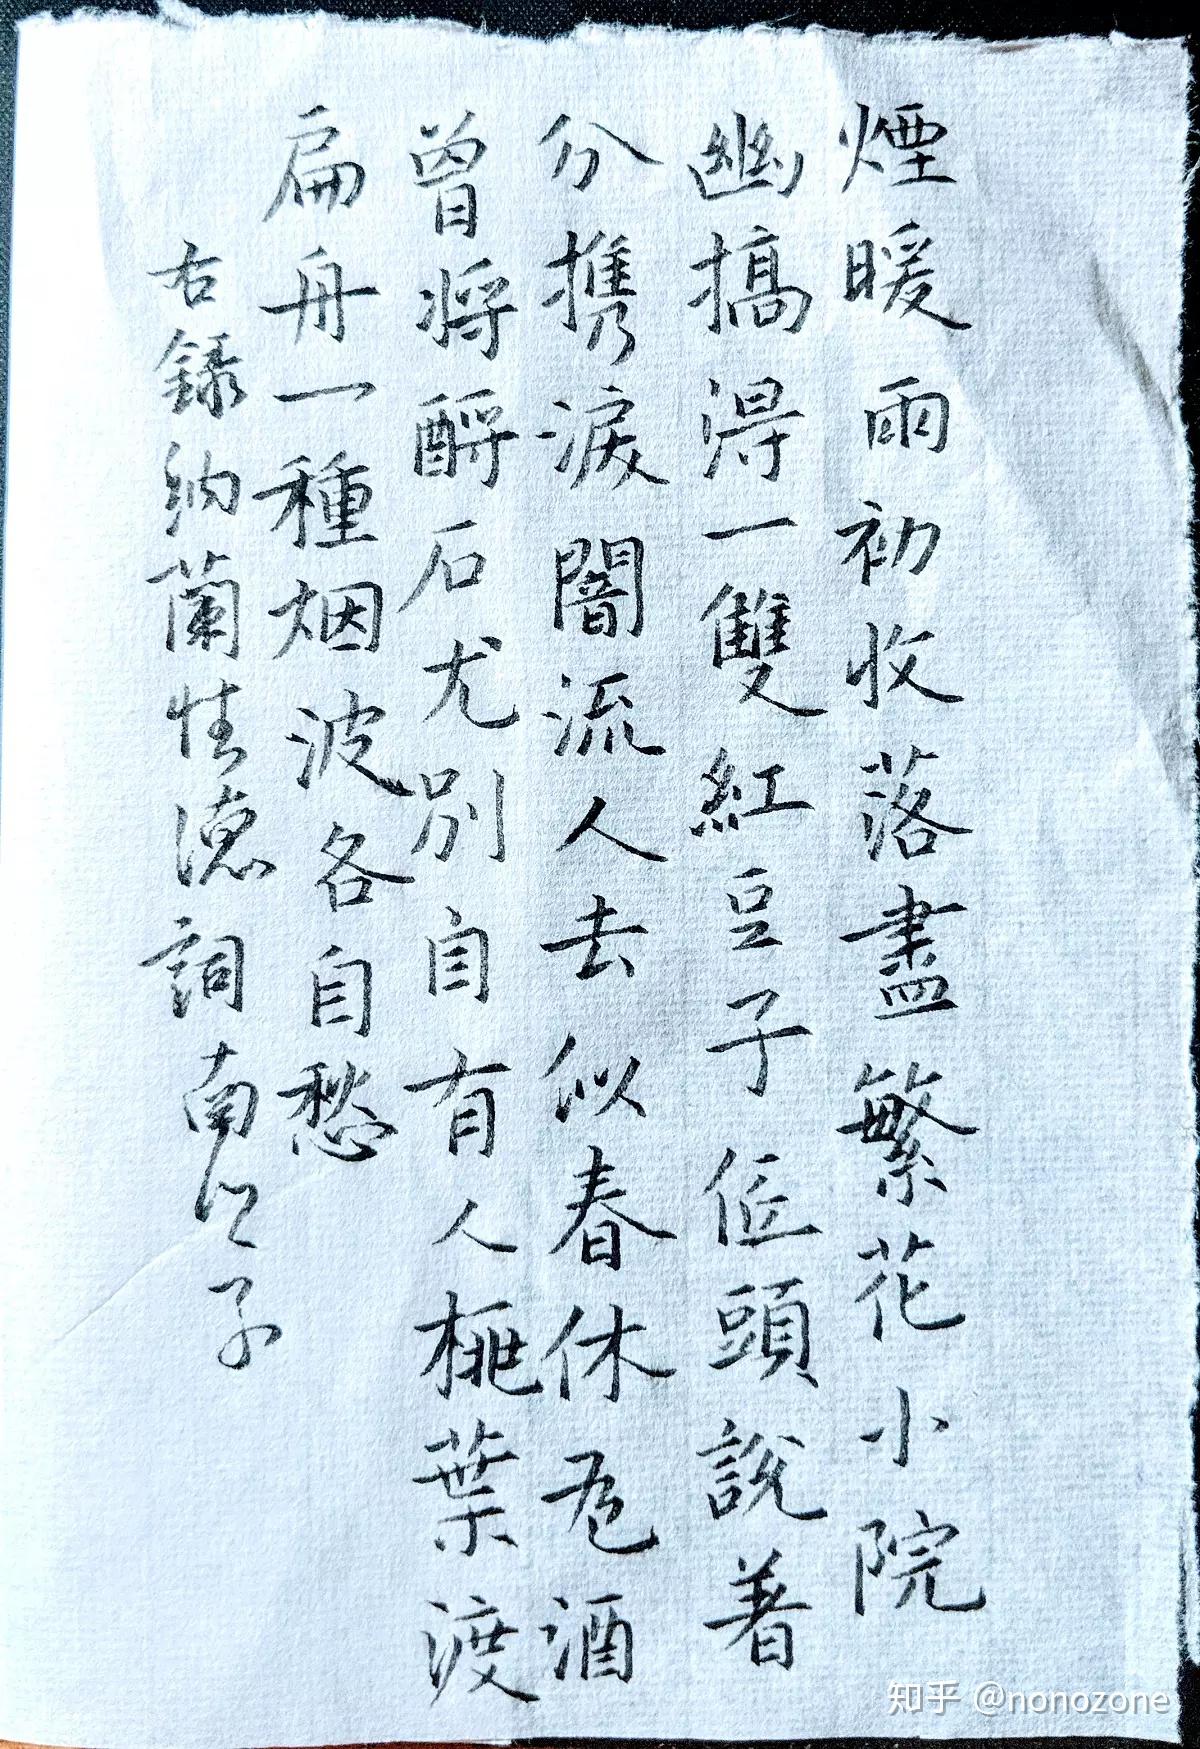 煙暖雨初收落盡繁花小院
幽摘得一雙紅豆子低頭說着
分携淚闇流人去似春休卮酒
曾將酹石尤別自有人桃葉渡
扁舟一種烟波各自愁
右錄納蘭性德詞南鄉子
知乎 @nonozone